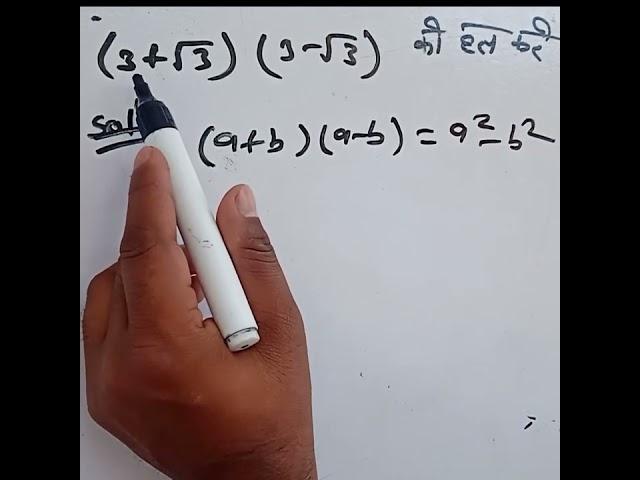 (3+√3) (3-√3) को हल करे
Sol
(a+b)(a-b) = a²-b²